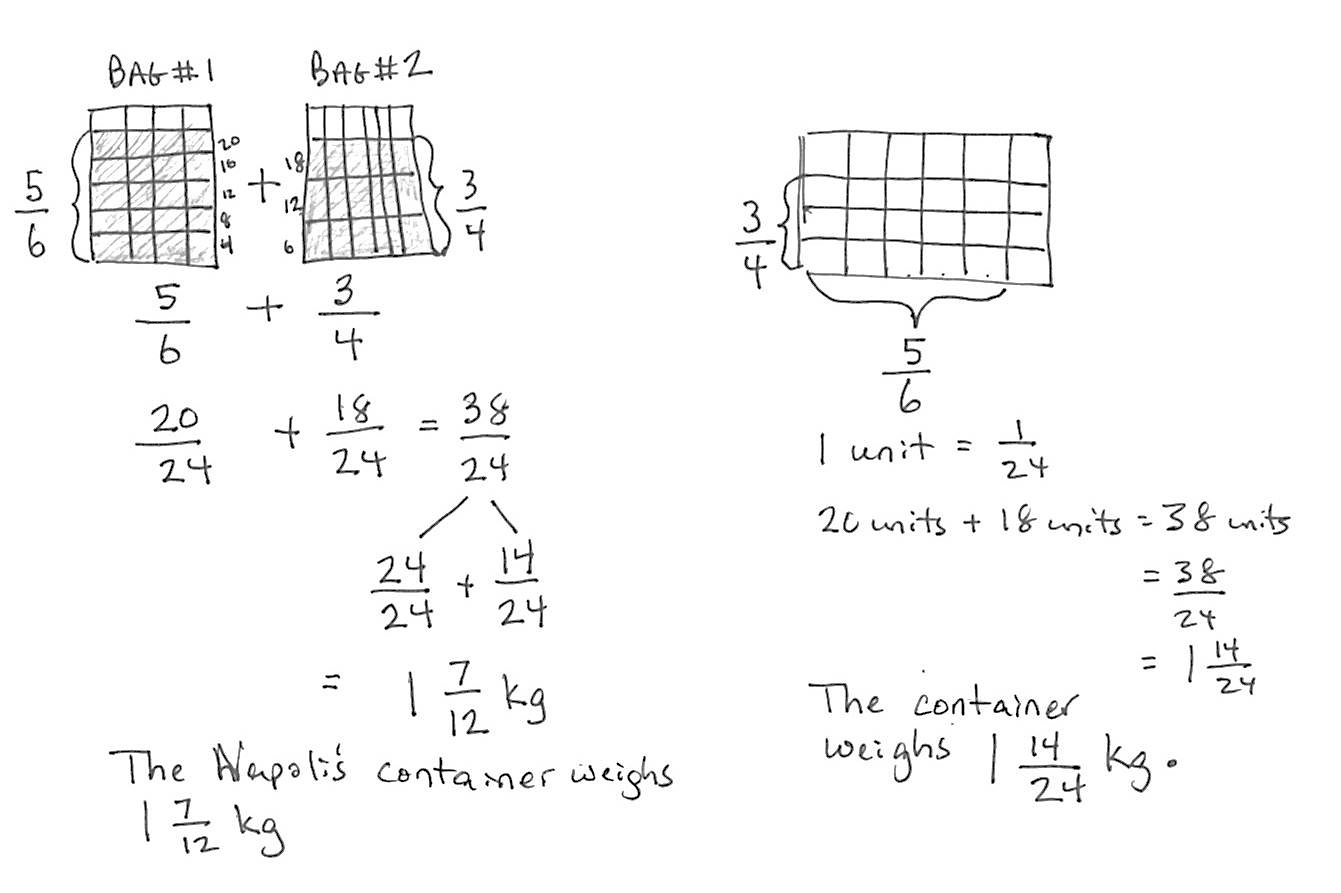 BAG #1 BAG #2
5/6 20 16 12 8 4 + 18 12 6 3/4
5/6 + 3/4
20/24 + 18/24 = 38/24
24/24 + 14/24
= 1 7/12 kg
The Napoli's container weighs
1 7/12 kg
3/4
5/6
1 unit = 1/24
20 units + 18 units = 38 units
= 38/24
= 1 14/24
The container
weighs 1 14/24 kg.